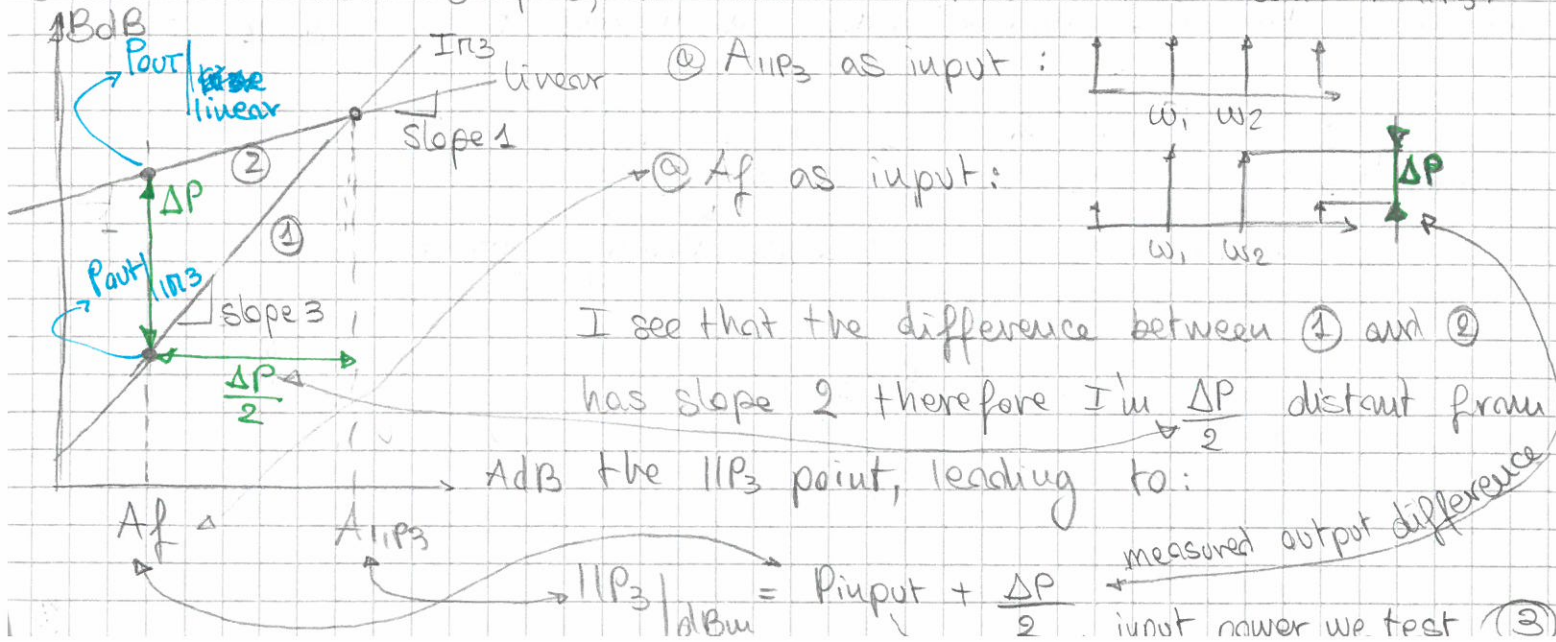 BdB
Pout| linear
IM3
linear
slope 1
②
ΔP
①
Pout|IM3
slope 3
ΔP/2
AdB
Af
AIIP3
@ AIIP3 as input :
ω1 ω2
@ Af as input:
ΔP
ω1 ω2
I see that the difference between ① and ②
has slope 2 therefore I'm ΔP/2 distant from
the IIP3 point, leading to:
measured output difference
IIP3|dBm = Pinput + ΔP/2
input power we test ③